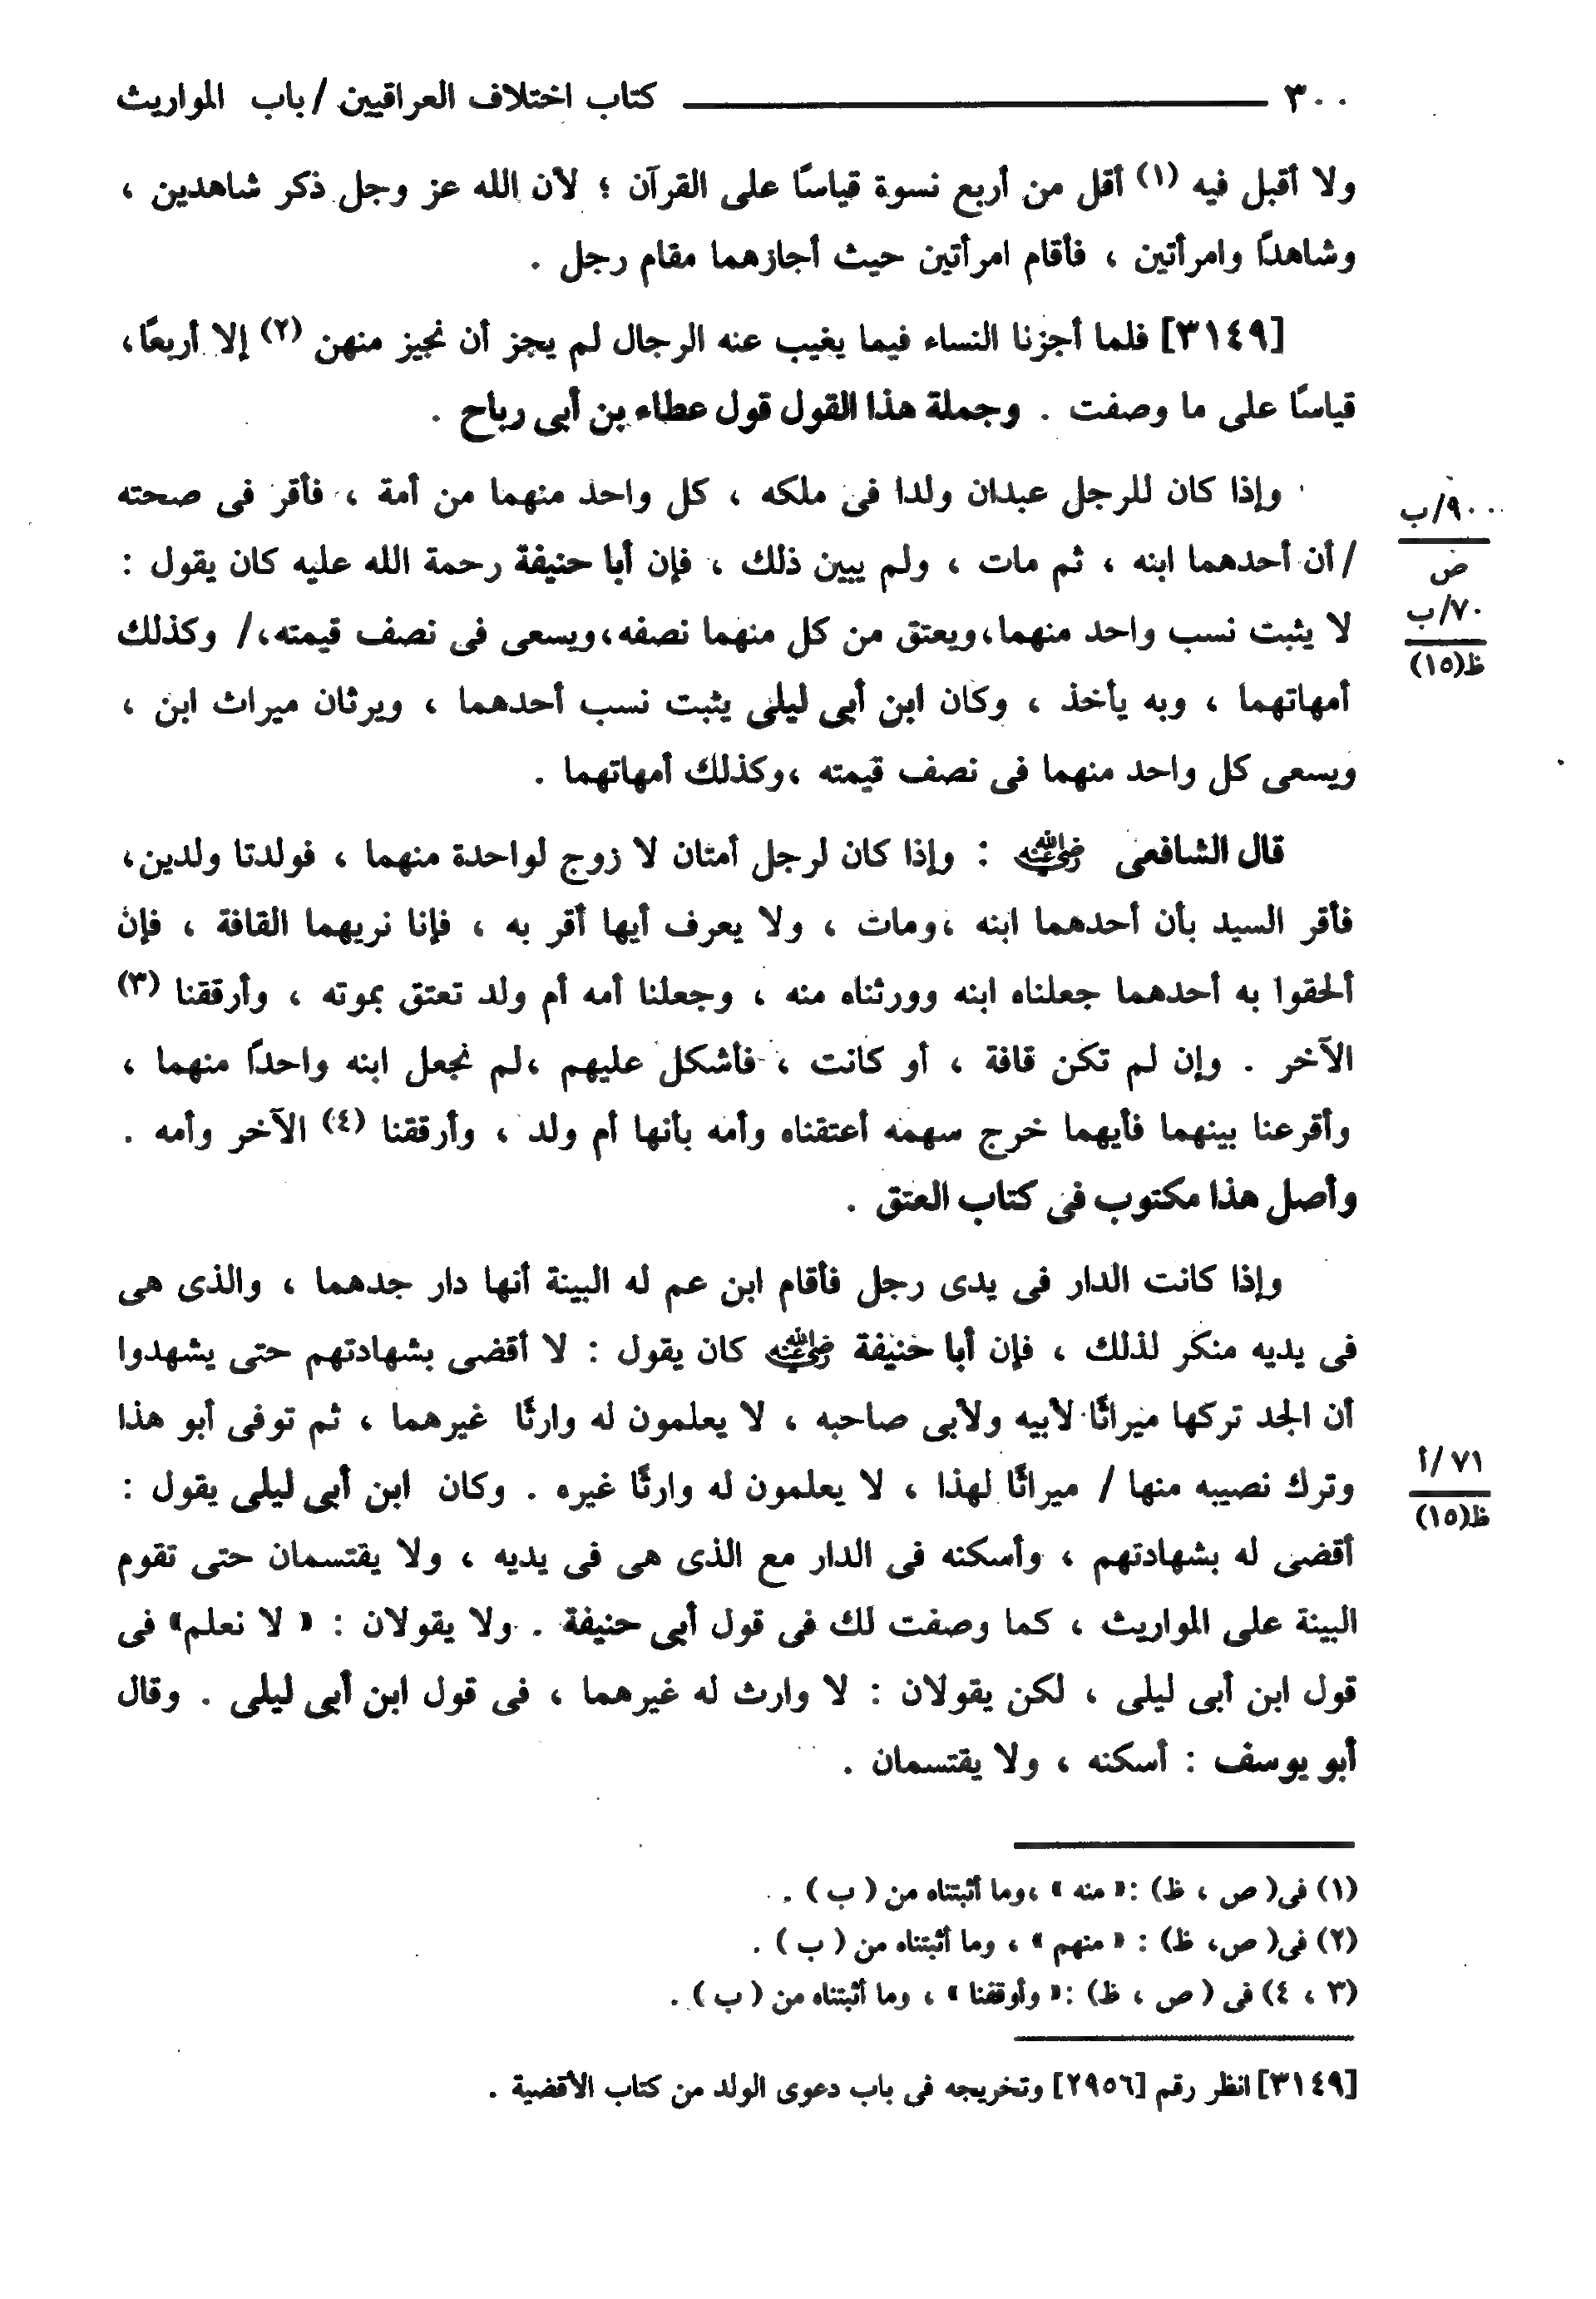 ٣٠٠ كتاب اختلاف العراقيين / باب المواريث
ولا أقبل فيه (١) أقل من أربع نسوة قياسًا على القرآن ؛ لأن الله عز وجل ذكر شاهدين ،
وشاهدًا وامرأتين ، فأقام امرأتين حيث أجازهما مقام رجل .
[٣١٤٩] فلما أجزنا النساء فيما يغيب عنه الرجال لم يجز أن نجيز منهن (٢) إلا أربعًا،
قياسًا على ما وصفت . وجملة هذا القول قول عطاء بن أبى رباح .
وإذا كان للرجل عبدان ولدا فى ملكه ، كل واحد منهما من أمة ، فأقر فى صحته
/ أن أحدهما ابنه ، ثم مات ، ولم يبين ذلك ، فإن أبا حنيفة رحمة الله عليه كان يقول :
لا يثبت نسب واحد منهما،ويعتق من كل منهما نصفه،ويسعى فى نصف قيمته،/ وكذلك
أمهاتهما ، وبه يأخذ ، وكان ابن أبى ليلى يثبت نسب أحدهما ، ويرثان ميراث ابن ،
ويسعى كل واحد منهما فى نصف قيمته ،وكذلك أمهاتهما .
قال الشافعى رضي الله عنه : وإذا كان لرجل أمتان لا زوج لواحدة منهما ، فولدتا ولدين،
فأقر السيد بأن أحدهما ابنه ،ومات ، ولا يعرف أيها أقر به ، فإنا نريهما القافة ، فإن
ألحقوا به أحدهما جعلناه ابنه وورثناه منه ، وجعلنا أمه أم ولد تعتق بموته ، وأرققنا (٣)
الآخر . وإن لم تكن قافة ، أو كانت ، فأشكل عليهم ،لم نجعل ابنه واحدًا منهما ،
وأقرعنا بينهما فأيهما خرج سهمه أعتقناه وأمه بأنها أم ولد ، وأرققنا (٤) الآخر وأمه .
وأصل هذا مكتوب فى كتاب العتق .
وإذا كانت الدار فى يدى رجل فأقام ابن عم له البينة أنها دار جدهما ، والذى هى
فى يديه منكر لذلك ، فإن أبا حنيفة رضي الله عنه كان يقول : لا أقضى بشهادتهم حتى يشهدوا
أن الجد تركها ميراثًا لأبيه ولأبى صاحبه ، لا يعلمون له وارثًا غيرهما ، ثم توفى أبو هذا
وترك نصيبه منها / ميراثًا لهذا ، لا يعلمون له وارثًا غيره . وكان ابن أبى ليلى يقول :
أقضى له بشهادتهم ، وأسكنه فى الدار مع الذى هى فى يديه ، ولا يقتسمان حتى تقوم
البينة على المواريث ، كما وصفت لك فى قول أبى حنيفة . ولا يقولان : « لا نعلم» فى
قول ابن أبى ليلى ، لكن يقولان : لا وارث له غيرهما ، فى قول ابن أبى ليلى . وقال
أبو يوسف : أسكنه ، ولا يقتسمان .
٩٠٠/ب
ص
٧٠/ب
ظ(١٥)
٧١/أ
ظ(١٥)
(١) فى( ص ، ظ) :« منه » ،وما أثبتناه من ( ب ) .
(٢) فى( ص، ظ) : « منهم » ، وما أثبتناه من ( ب ) .
(٣ ، ٤) فى ( ص ، ظ) :« وأوقفنا » ، وما أثبتناه من ( ب ) .
[٣١٤٩] انظر رقم [٢٩٥٦] وتخريجه فى باب دعوى الولد من كتاب الأقضية .